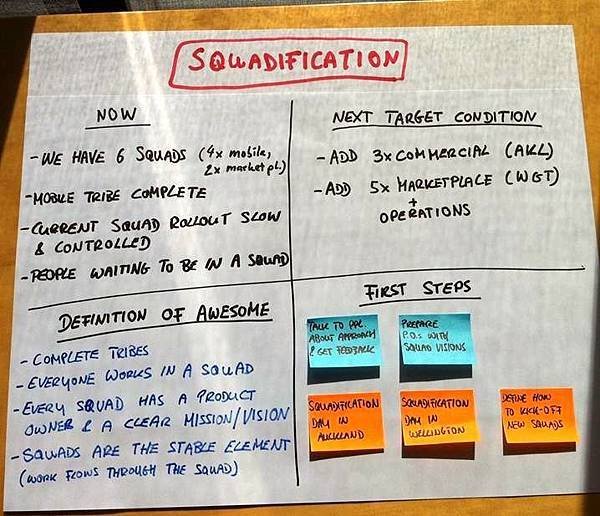 SQUADIFICATION
NOW
- WE HAVE 6 SQUADS (4x mobile,
2x marketpl.)
- MOBILE TRIBE COMPLETE
- CURRENT SQUAD ROLLOUT SLOW
& CONTROLLED
- PEOPLE WAITING TO BE IN A SQUAD
NEXT TARGET CONDITION
- ADD 3x COMMERCIAL (AKL)
- ADD 5x MARKETPLACE (WGT)
+
OPERATIONS
DEFINITION OF AWESOME
- COMPLETE TRIBES
- EVERYONE WORKS IN A SQUAD
- EVERY SQUAD HAS A PRODUCT
OWNER & A CLEAR MISSION/VISION
- SQUADS ARE THE STABLE ELEMENT
(WORK FLOWS THROUGH THE SQUAD)
FIRST STEPS
TALK TO PPL.
ABOUT APPROACH
& GET FEEDBACK
PREPARE
P.O.s WITH
SQUAD VISIONS
SQUADIFICATION
DAY IN
AUCKLAND
SQUADIFICATION
DAY IN
WELLINGTON
DEFINE HOW
TO KICK-OFF
NEW SQUADS